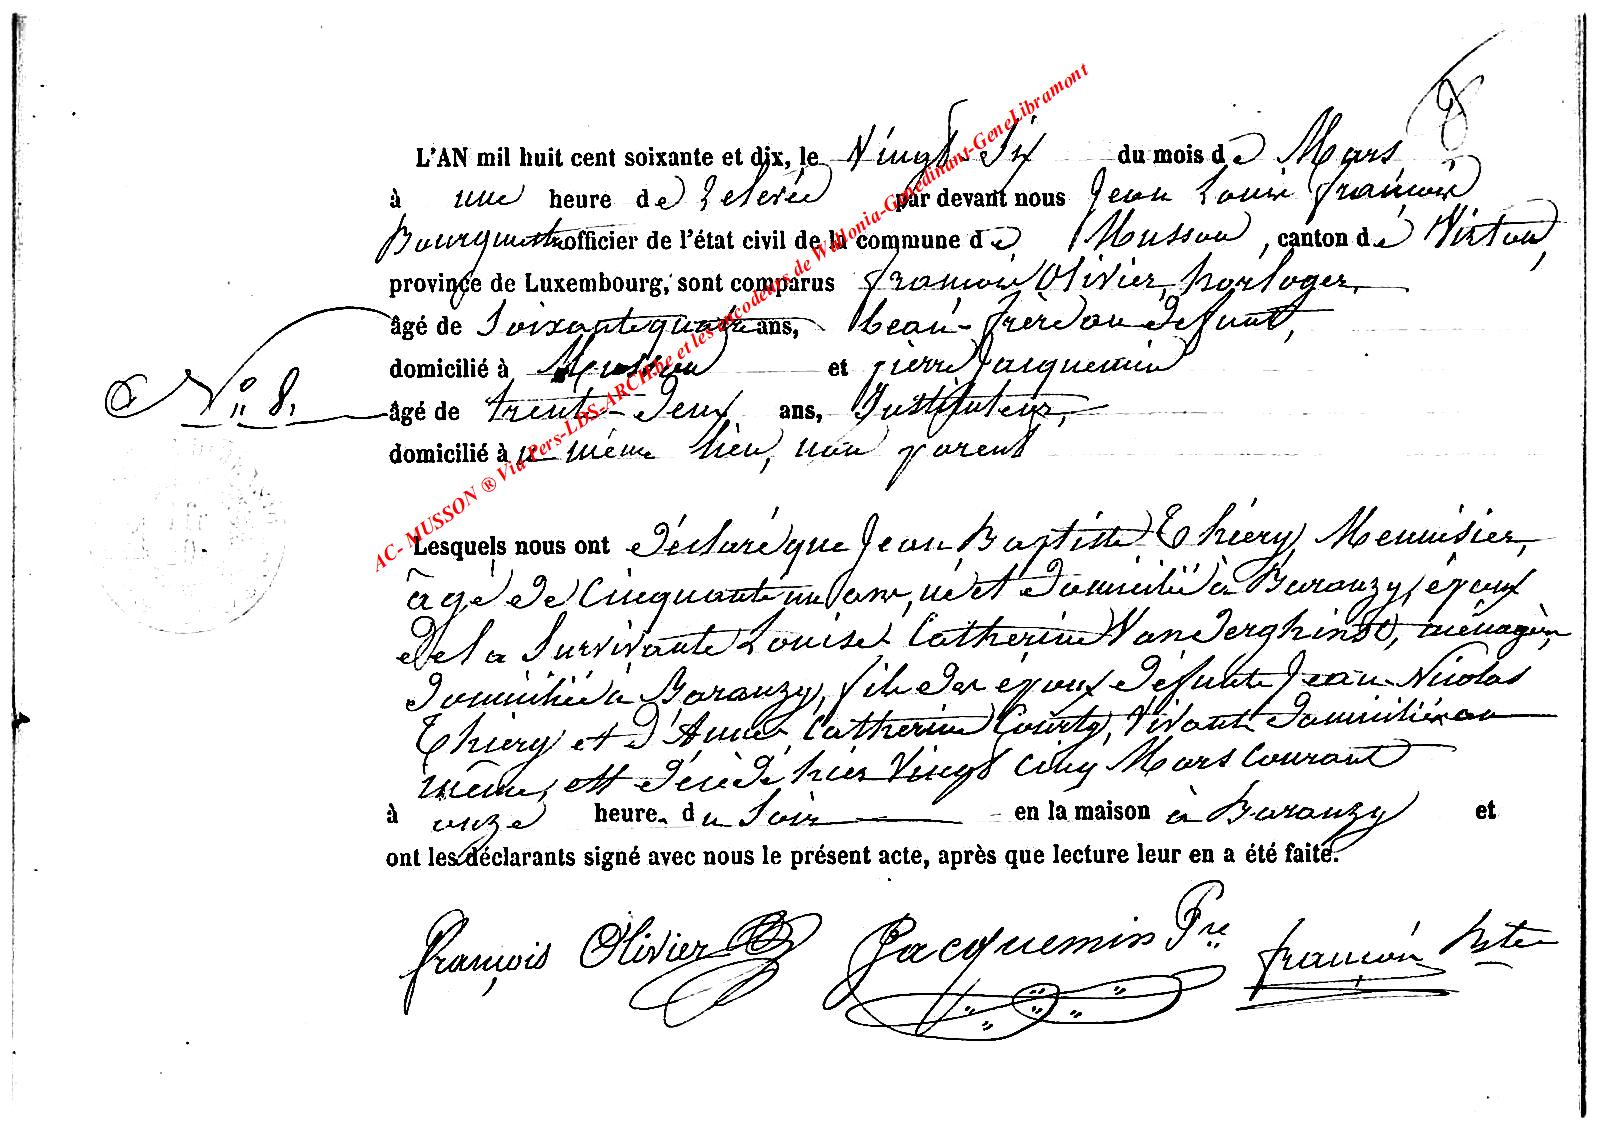 8
L'AN mil huit cent soixante et dix, le Vingt Six du mois de Mars
à une heure de relevée par devant nous Jean Louis François
officier de l'état civil de la commune de Musson, canton de Virton,
province de Luxembourg, sont comparus François Olivier, horloger,
âgé de Soixante quatre ans, beau-frère au défunt,
domicilié à Musson et pierre Jacquemin
N° 8.
âgé de trente-deux ans, Instituteur,
domicilié à u même lieu, non parent
Lesquels nous ont déclaré que Jean Baptiste Thiery, Menuisier,
âgé de Cinquante un ans, né et domicilié à Baranzy, époux
de la Survivante Louise Catherine Vanderghinst, ménagère,
domiciliée à Baranzy, fils des époux défunts Jean Nicolas
Thiery et d'Anne Catherine Courty, vivant domiciliés au
même, est décédé hier Vingt cinq Mars courant
à onze heure. du Soir en la maison à Baranzy et
ont les déclarants signé avec nous le présent acte, après que lecture leur en a été faite.
françois Olivier Jacquemin Pre françois
AC- MUSSON ® Via Pers-LDS-ARCH.be et les encodeurs de Wallonia-Genedinant-GeneLibramont